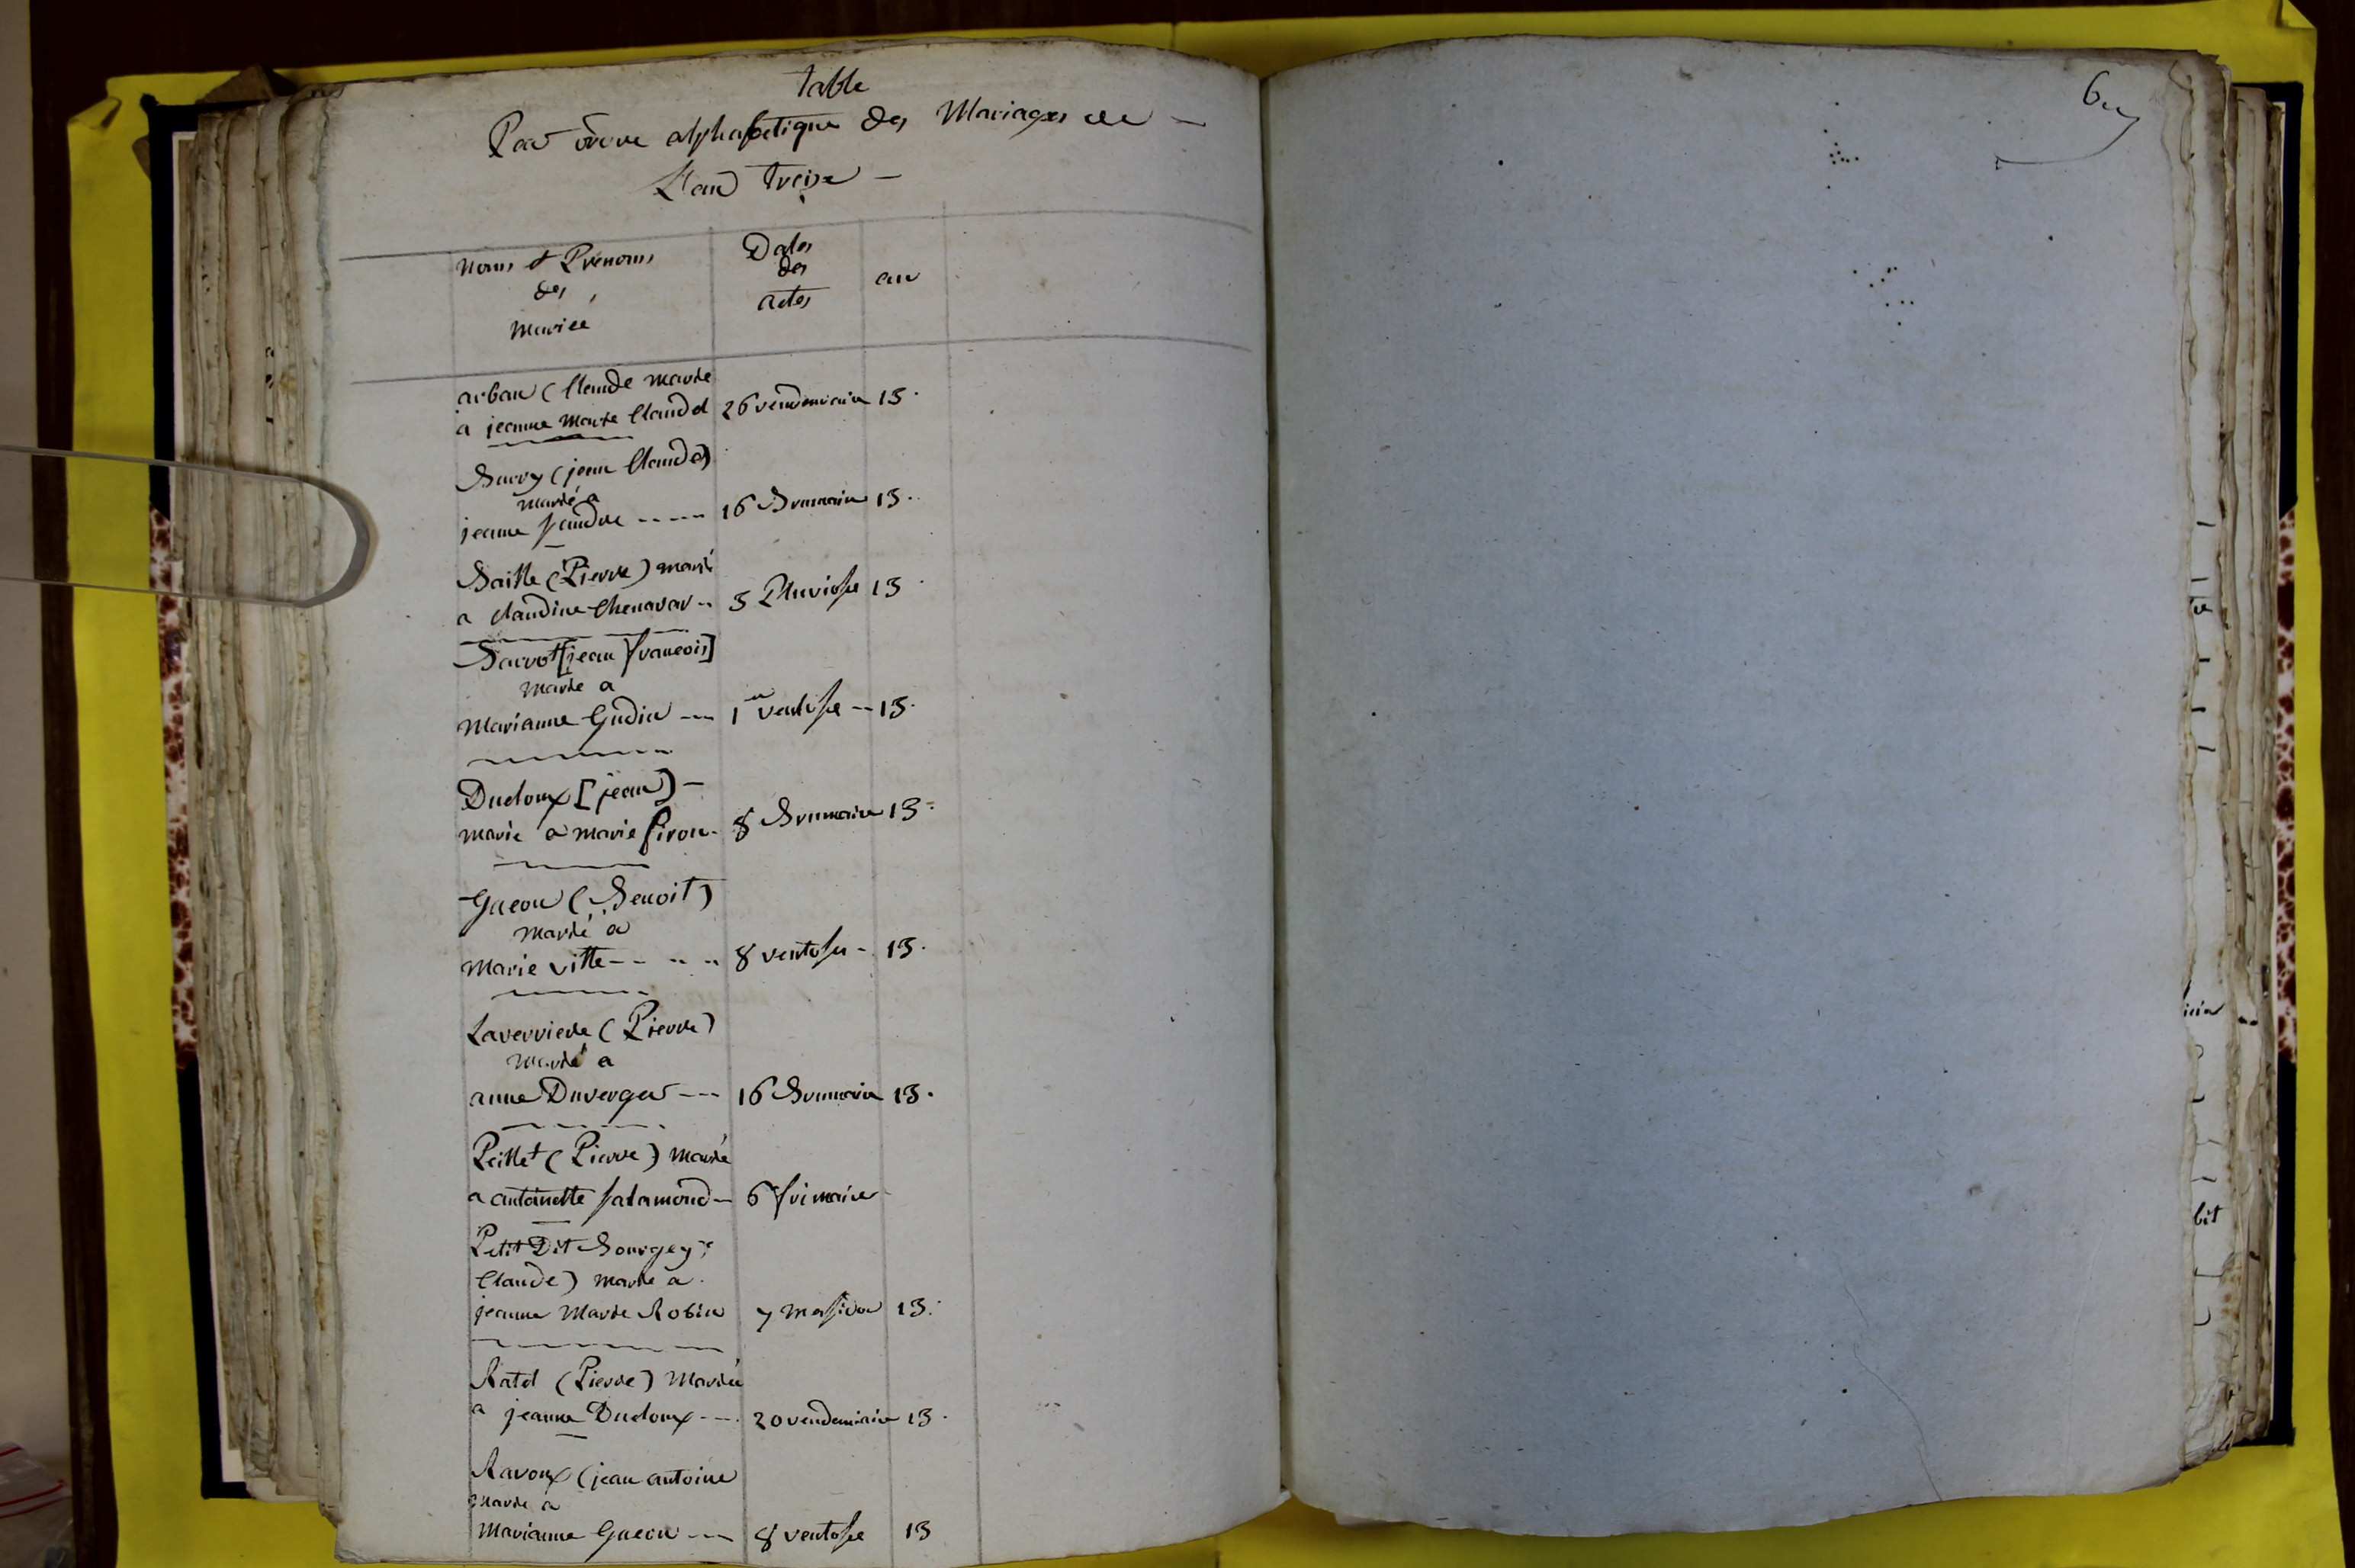 table
Par ordre alphabetique des Mariages de –
L'an treize –
Noms et Prénoms
des
Marieé
Dates
des
actes
an
arban (Claude marié
a jeanne Marie Claudel 26 vendemiaire 13.
Burry (jean Claude)
marié a
jeanne ----- 16 Brumaire 13.
Baille (Pierre) marié
a claudine Chenavar -- 5 Pluviose 13
Barrot [jean françois]
marié a
marianne Gudin --- 1er ventose -- 13.
Dudoux [jean] –
marié a marie Piron - 8 Brumaire 13.
Gueon (Benoit)
marié a
Marie vitte -- -- -- 8 ventose - 13.
Laverriere (Pierre)
marié a
anne Duverger --- 16 Brumaire 13.
Peillet (Pierre) marié
a antoinette salamond – 6 frimaire
Petit Dit Bourgey
Claude) marié a
jeanne Marie Robin 7 messidor 13.
Ratel (Pierre) Marieé
a jeanne Dudoux --- 20 vendemiaire 13.
Ravoux (jean antoine
marié a
Marianne Gueon --- 8 ventose 13
icia
bit